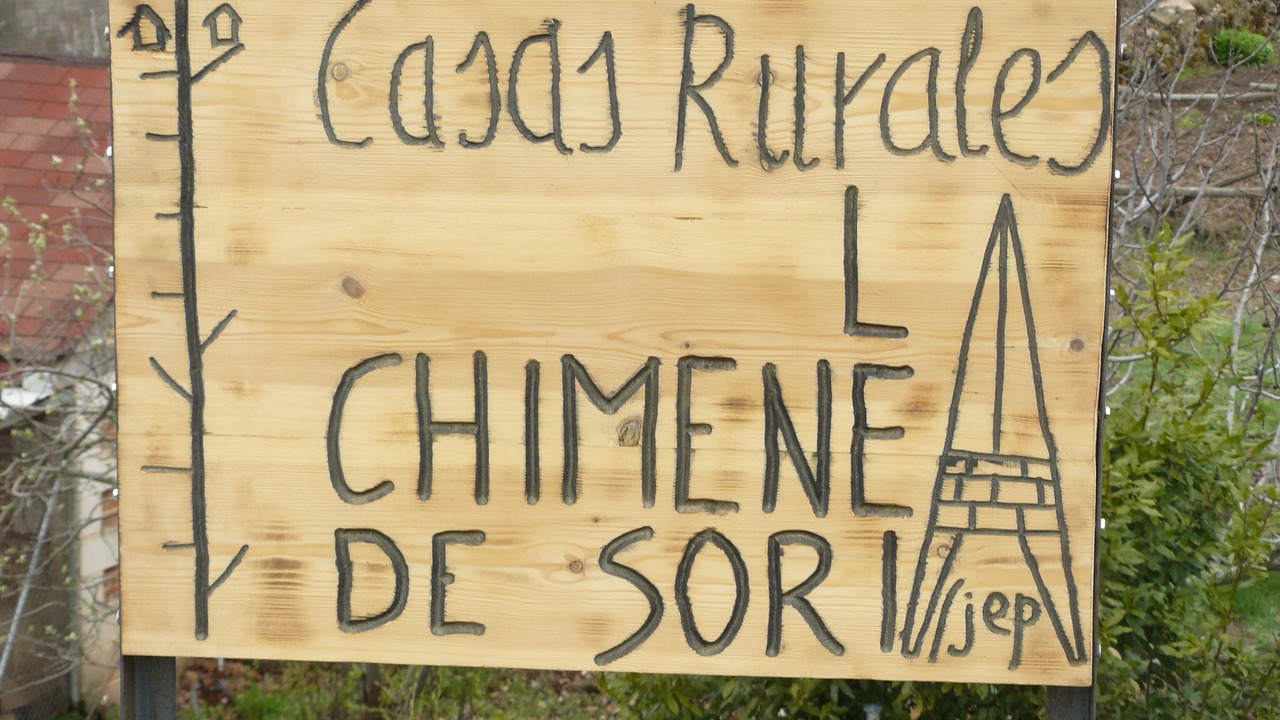 Casas Rurales
LA
CHIMENEA
DE SORIA
jep